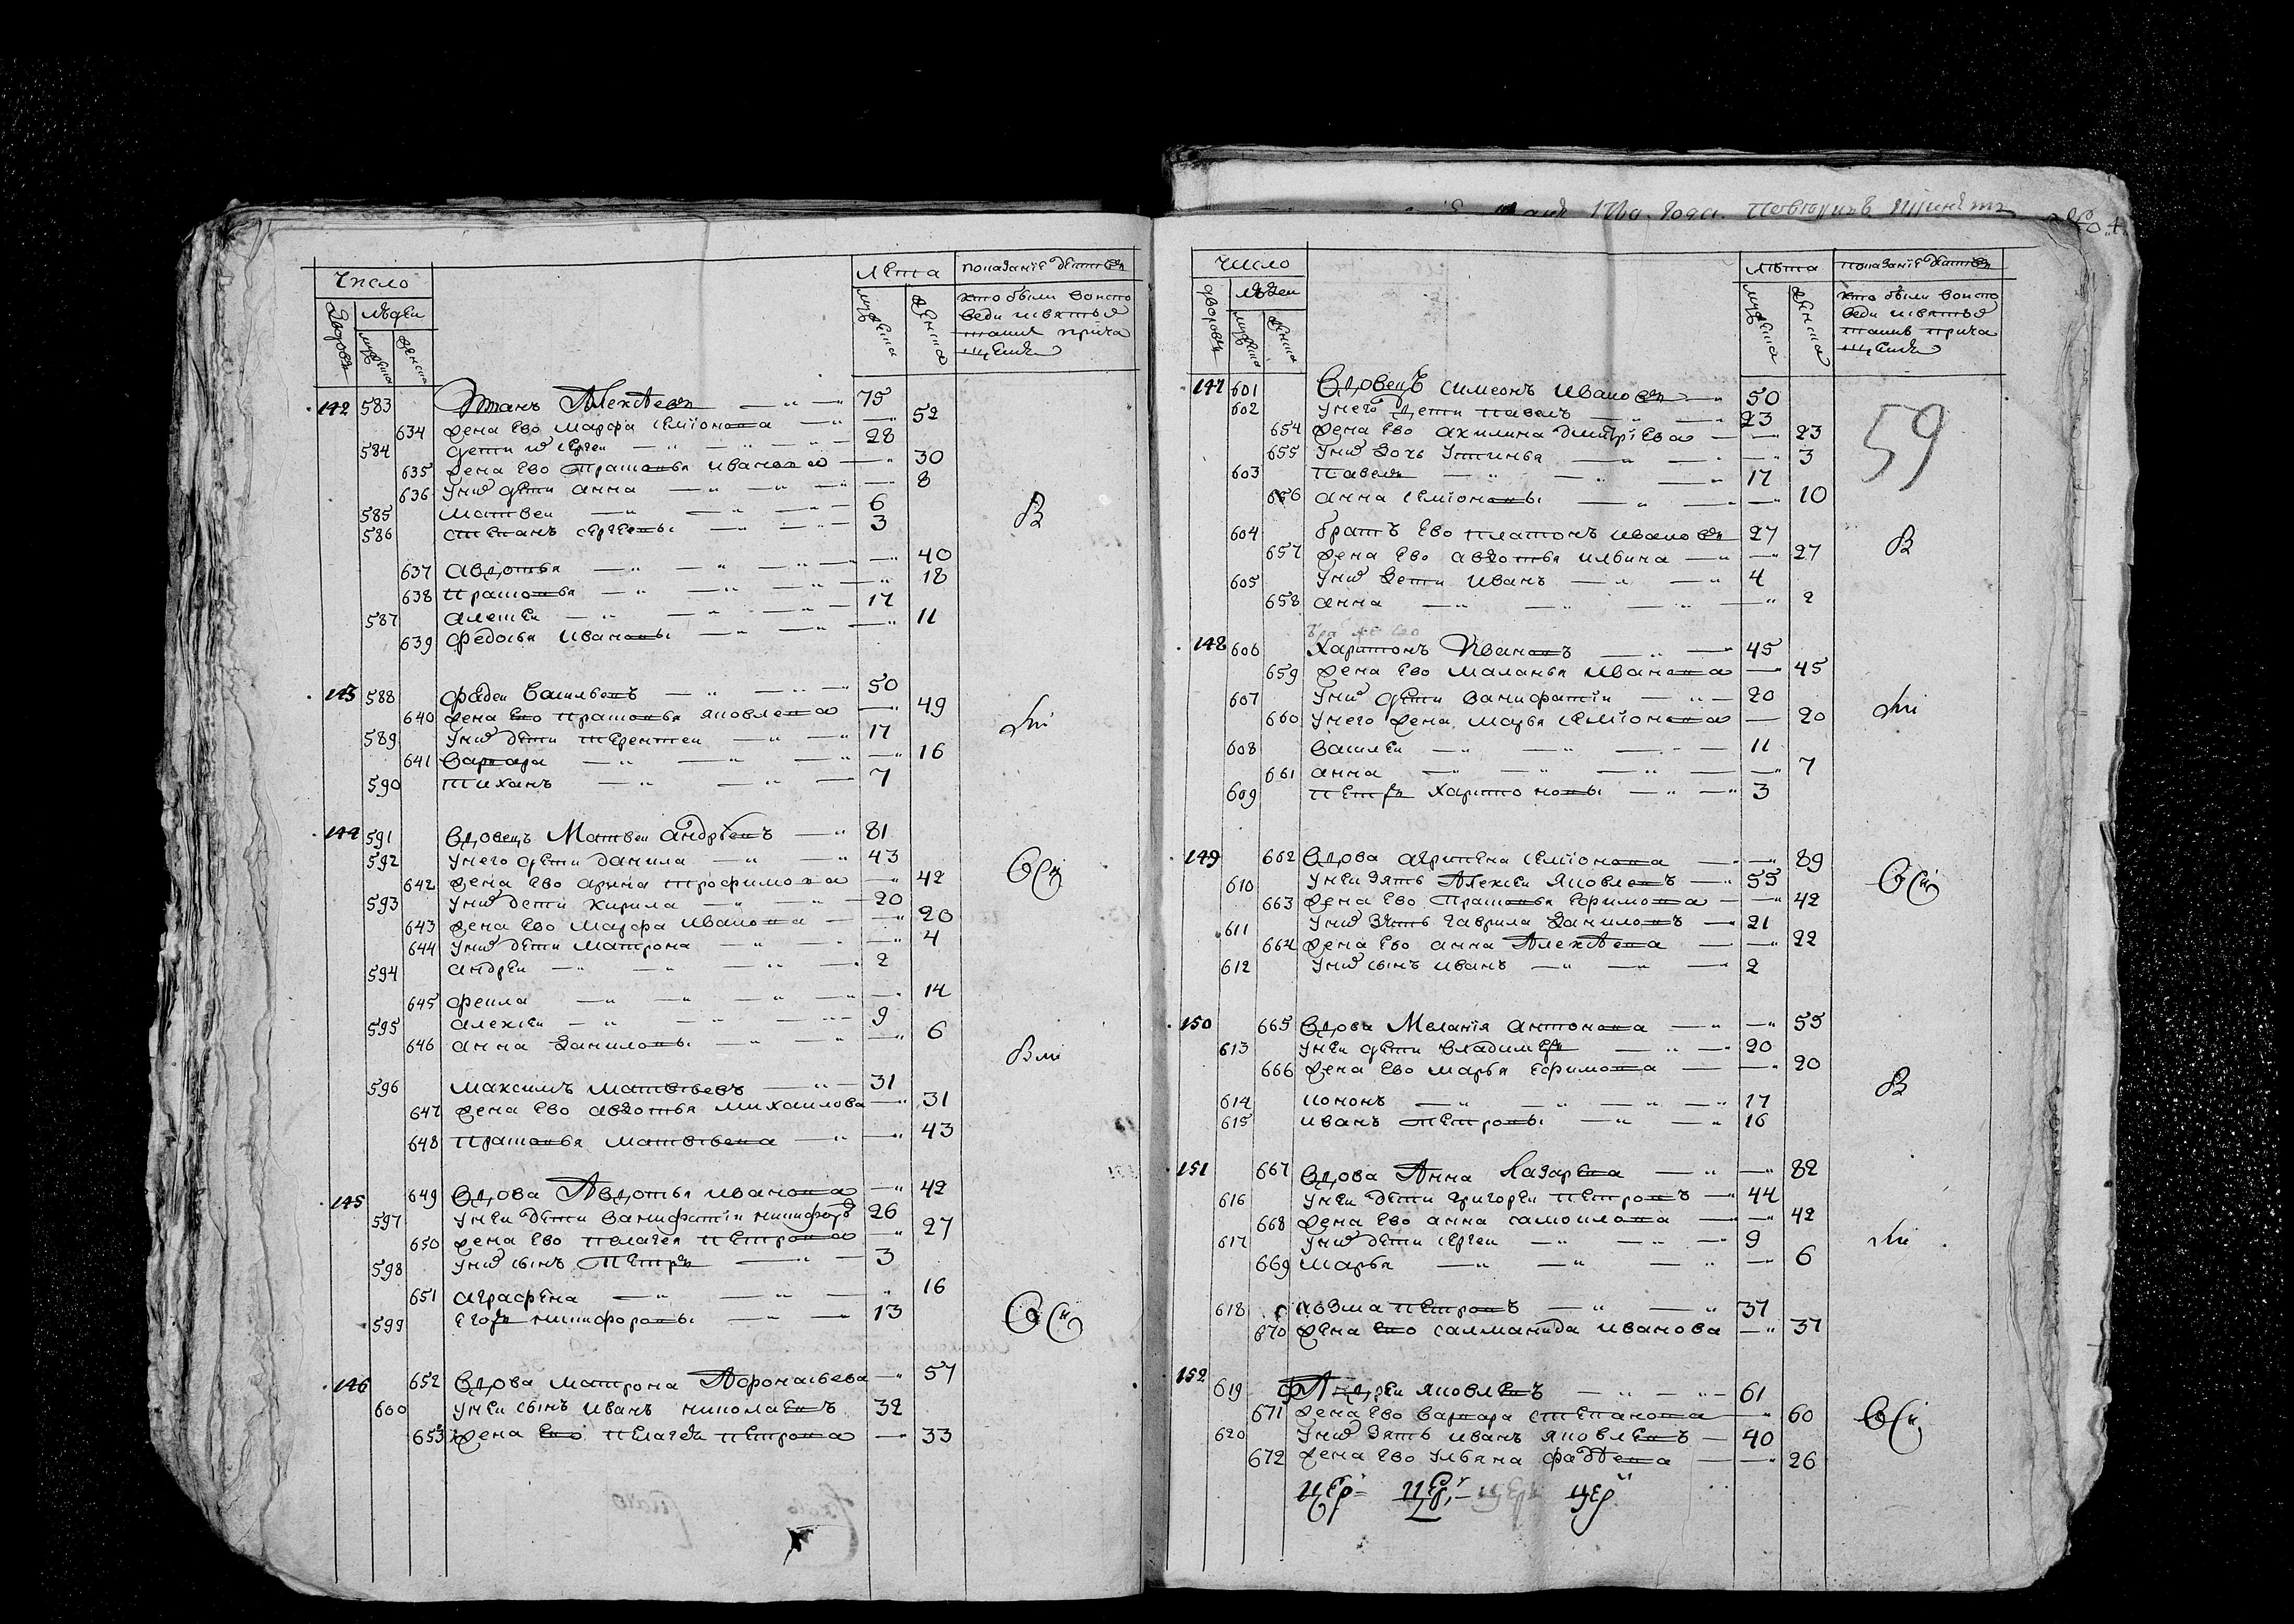 Число
Лѣта
показанїе дѣиствъ
Дворовъ
людеи
мужеска
женска
мужеска
женска
кто были во испо
веди и святыхъ
таинъ прича
щенїи
142 583 Иванъ Алексѣевъ 75
634 жена ево Марфа семїонова 52
584 дети их сергеи 28
635 жена ево прасковья иванова 30
636 у них дети анна 8
585 матвеи 6
586 степанъ сергеевы 3
637 авдотья 40
638 прасковья 18
587 алексеи 17
639 федосья ивановы 11
143 588 фадеи васильевъ 50
640 жена ево прасковья яковлева 49
589 у них дети терентеи 17
641 варвара 16
590 тиханъ 7
144 591 вдовецъ Матвеи андрѣевъ 81
592 у него дети данила 43
642 жена ево арина трофимова 42
593 у них дети кирила 20
643 жена ево марфа иванова 20
644 у них дети матрона 4
594 андреи 2
645 фекла 14
595 алексеи 9
646 анна даниловы 6
596 максимъ матвѣевъ 31
647 жена ево авдотья михаилова 31
648 прасковья матвѣевна 43
145 649 вдова Авдотья иванова 42
597 у неи дети ванифатїи никифоровъ 26
650 жена ево пелагея петрова 27
598 у них сынъ петръ 3
651 аграфена 16
599 егоръ никифоровы 13
146 652 вдова матрона Афонасьева 57
600 у неи сынъ иванъ николаевъ 32
653 жена ево пелагея петрова 33
1760 года
Число
Лѣта
показанїе дѣиствъ
дворовъ
людеи
мужеска
женска
мужеска
женска
кто были во испо
веди и святыхъ
таинъ прича
щенїи
59
147 601 вдовецъ симеонъ ивановъ 50
602 у него дети павелъ 23
654 жена ево акилина дмитрїева 23
655 у них дочь устинья 3
603 павелъ 17
656 анна семїоновы 10
604 братъ ево платонъ ивановъ 27
657 жена ево авдотья ильина 27
605 у них дети иванъ 4
658 анна 2
148 606 Харитонъ Ивановъ 45
659 жена ево маланья иванова 45
607 у них дети ванифатїи 20
660 у него жена марья семїонова 20
608 василеи 11
661 анна 7
609 петръ харитоновы 3
149 662 вдова агрипена семїонова 89
610 у неи зять Алексеи яковлевъ 55
663 жена ево прасковья ефимова 42
611 у них зять гаврила даниловъ 21
664 жена ево анна Алексѣева 22
612 у них сынъ иванъ 2
150 665 вдова Меланїя антонова 55
613 у неи дети владимеръ 20
666 жена ево марья ефимова 20
614 кононъ 17
615 иванъ петровы 16
151 667 вдова Анна Назарева 82
616 у неи дети григореи петровъ 44
668 жена ево анна самоилова 42
617 у них дети сергеи 9
669 марья 6
618 козма петровъ 37
670 жена ево салманида иванова 37
152 619 Андреи яковлевъ 61
671 жена ево варвара степанова 60
620 у них зять иванъ яковлевъ 40
672 жена ево ульяна фаддеева 26